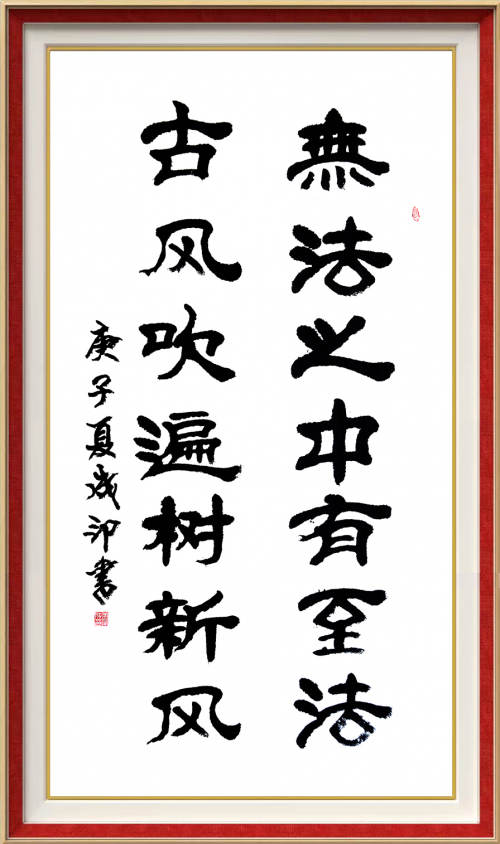 無法之中有至法
古风吹遍树新风
庚子夏成印書